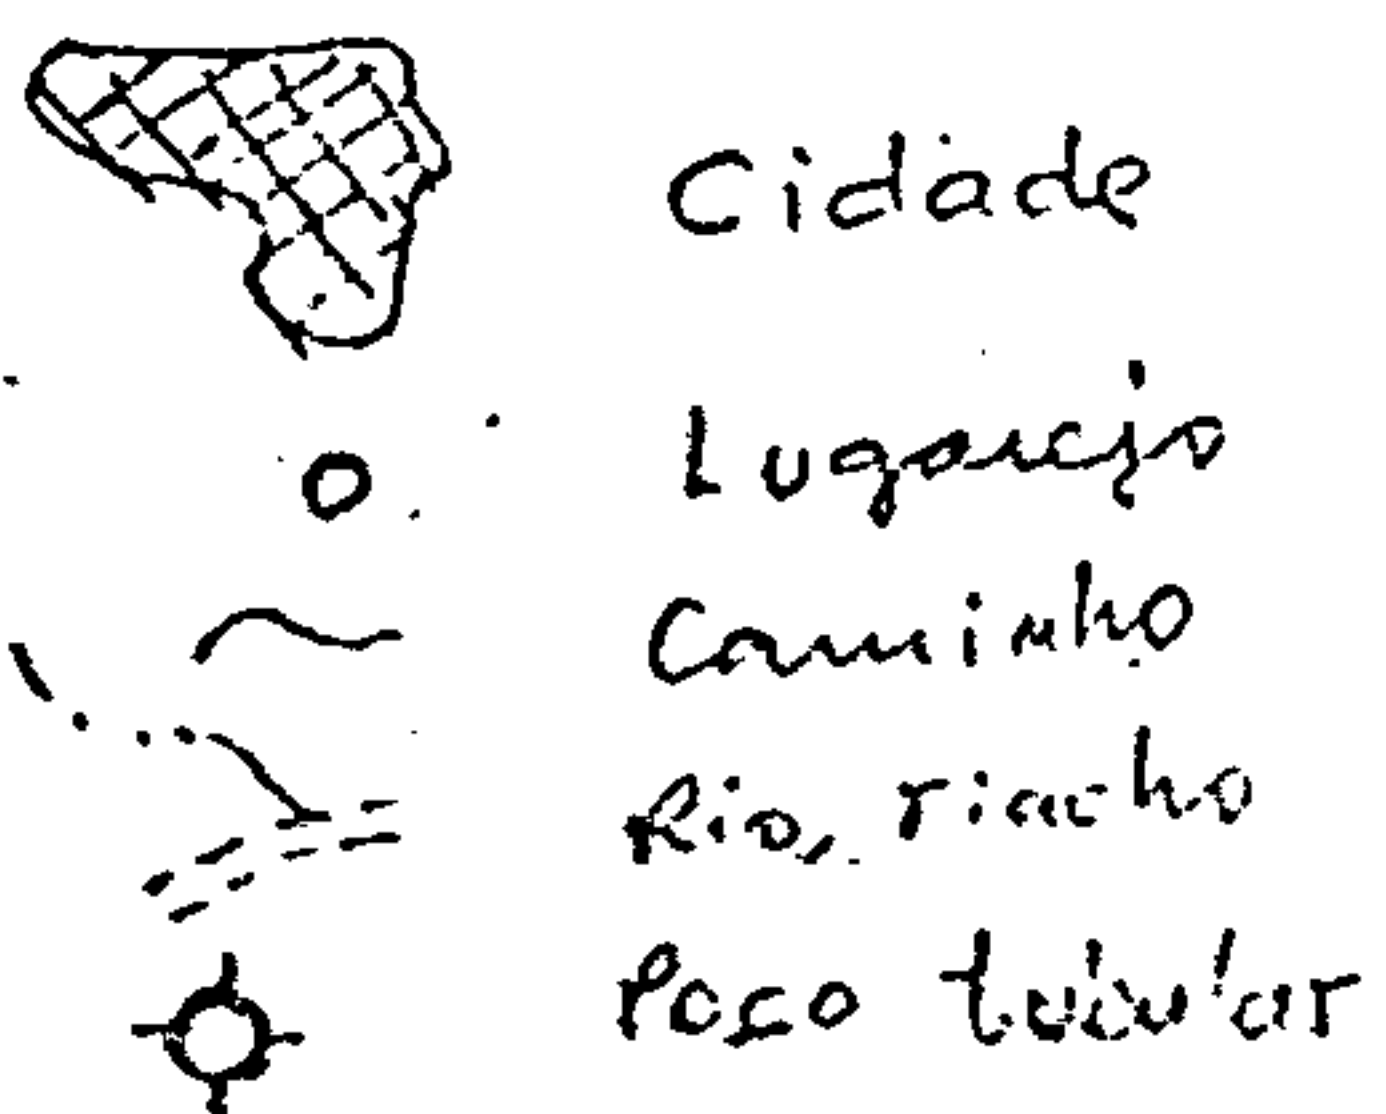 Cidade
Lugarejo
Caminho
Rio, riacho
Poço tubular